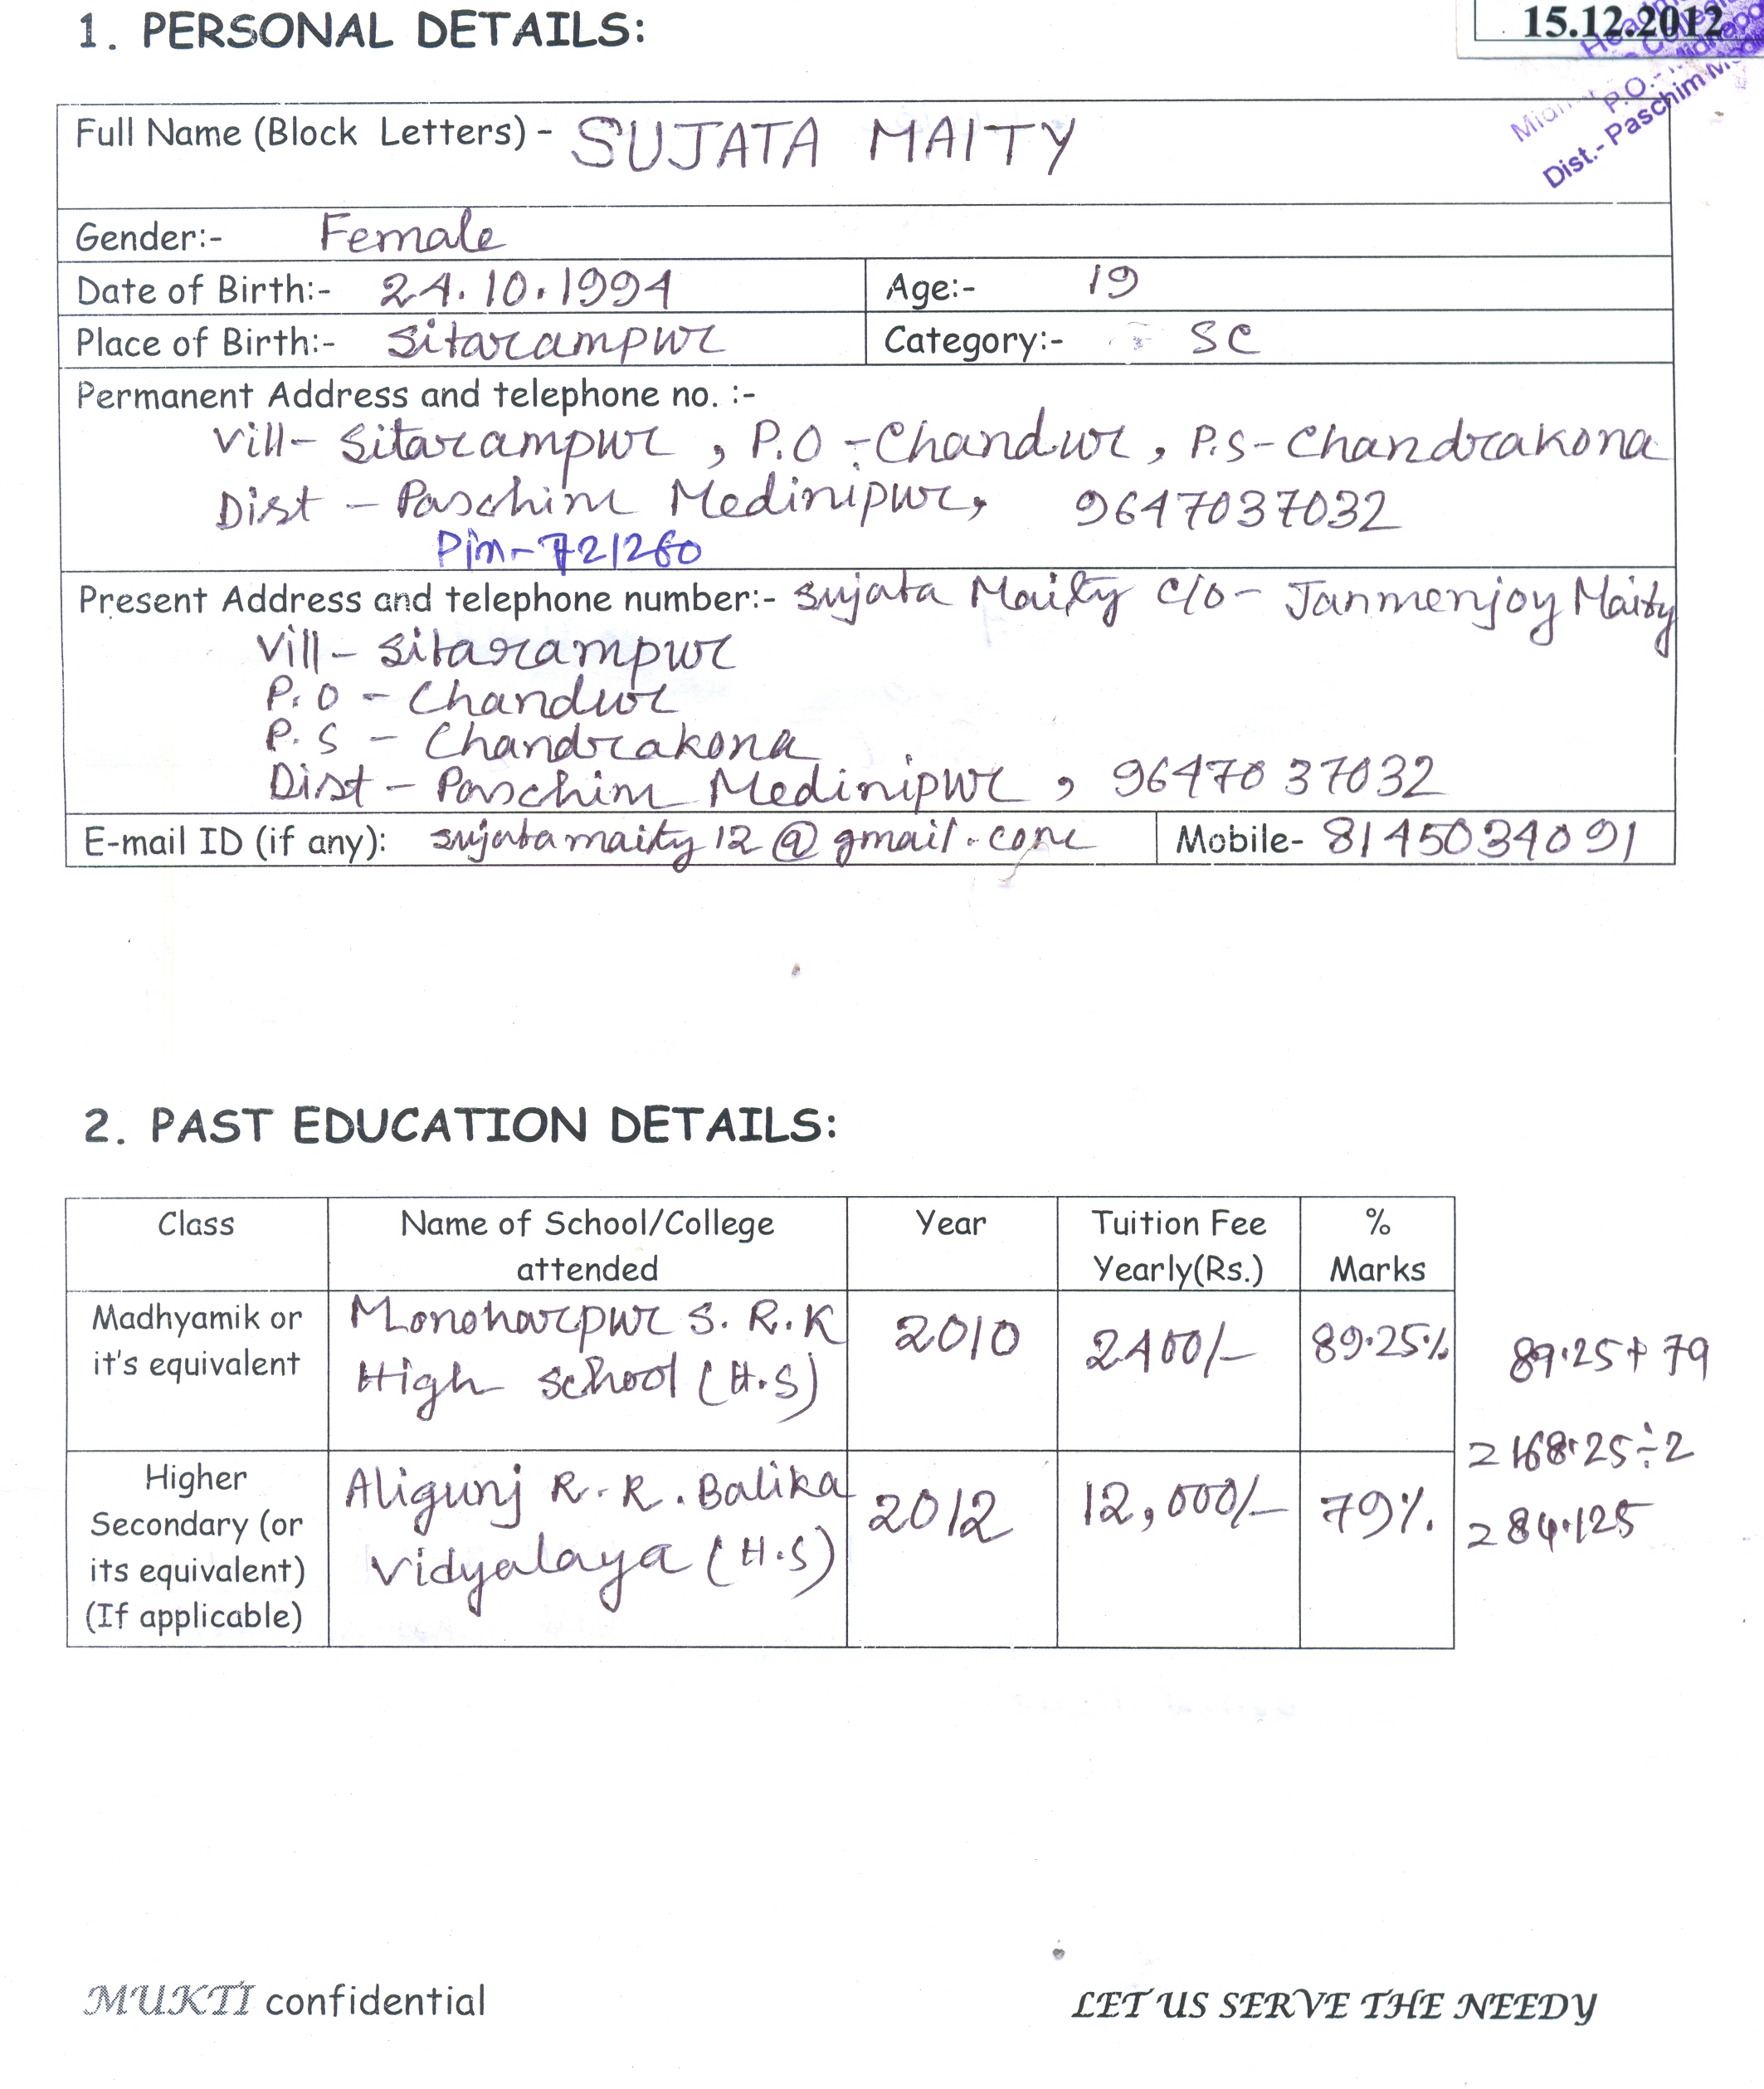 1. PERSONAL DETAILS:
15.12.2012
P.O.-
Dist.- Paschim
Full Name (Block Letters) - SUJATA MAITY
Gender:- Female
Date of Birth:- 24.10.1994 Age:- 19
Place of Birth:- Sitarampur Category:- SC
Permanent Address and telephone no. :-
Vill- Sitarampur, P.O - Chandur, P.S- Chandrakona
Dist - Paschim Medinipur, 9647037032
Pin-721260
Present Address and telephone number:- Sujata Maity C/O- Janmenjoy Maity
Vill - Sitarampur
P.O - Chandur
P.S - Chandrakona
Dist - Paschim Medinipur, 9647037032
E-mail ID (if any): sujatamaity12@gmail.com Mobile- 8145034091
2. PAST EDUCATION DETAILS:
Class Name of School/College attended Year Tuition Fee Yearly(Rs.) % Marks
Madhyamik or it's equivalent Monoharpur S.R.K High School (H.S) 2010 2400/- 89.25%
89.25+79
=168.25÷2
=84.125
Higher Secondary (or its equivalent) (If applicable) Aligunj R.R. Balika Vidyalaya (H.S) 2012 12,000/- 79%.
MUKTI confidential LET US SERVE THE NEEDY